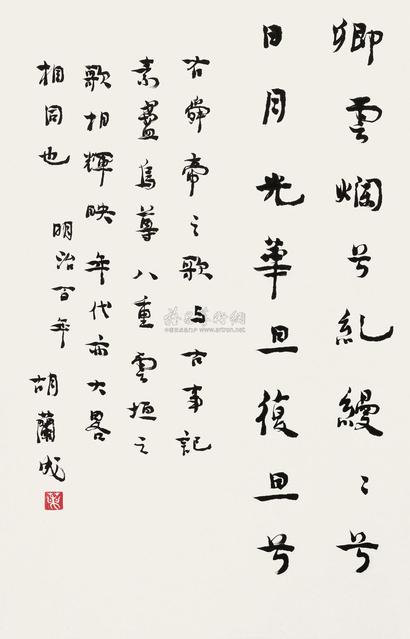 卿雲爛兮糺縵〻兮
日月光華旦復旦兮
右舜帝之歌与古事記
素盞烏尊八重雲垣之
歌相輝映年代亦大畧
相同也
明治百年
胡蘭成
www.artron.net